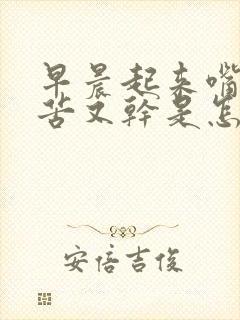 早晨起来嘴
苦又幹是怎
安倍吉俊